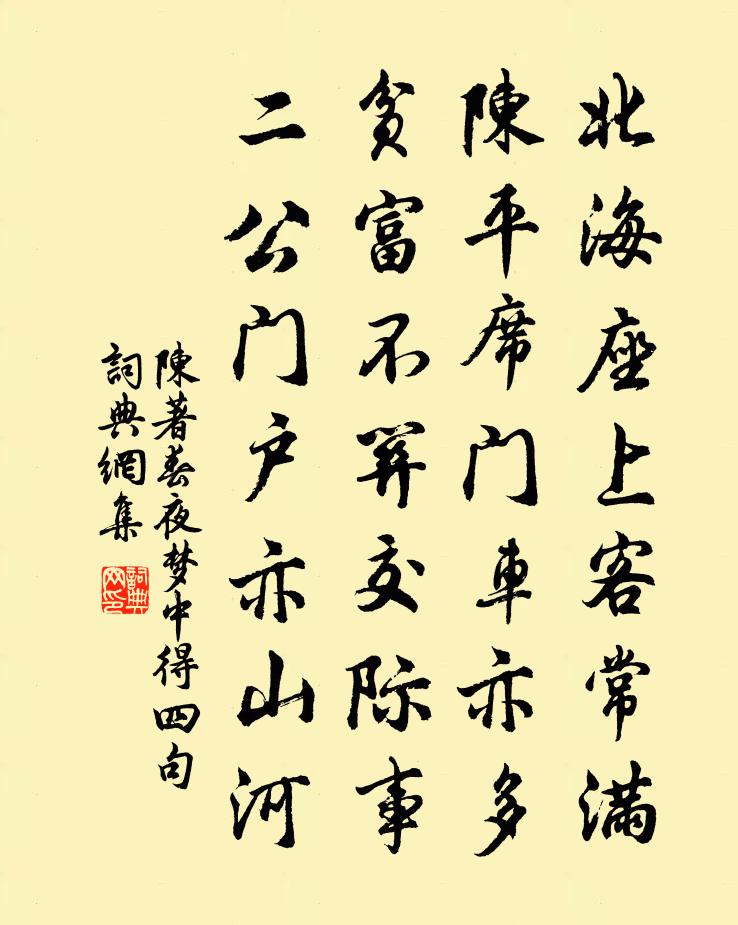 北海座上客常滿
陳平席門車亦多
貧富不關交际事
二公門户亦山河
陳著春夜梦中得四句
詞典網集
詞典
网印